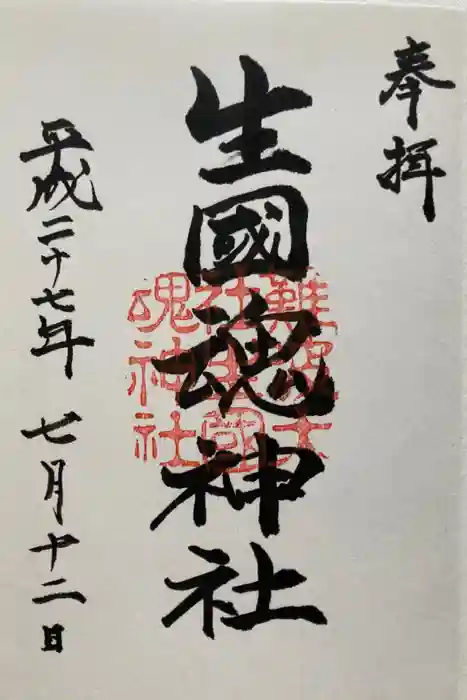 奉拝
生國魂神社
難波大
社生國
魂神社
平成二十七年七月十二日